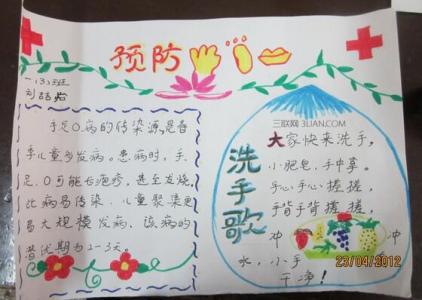 预防
一(3)班
手足O病的传染源,是春
季儿童多发病。患病时,手、
足、O可能长疱疹,甚至发烧。
此病易传染、儿童聚集更
易大规模发病、该病的
潜伏期为2-3天。
三联网 3LIAN.COM
洗手歌
大家快来洗手,
小肥皂,手中拿。
手心手心搓搓,
手背手背搓搓,
冲冲
水,小手
干净!
23/04/2012